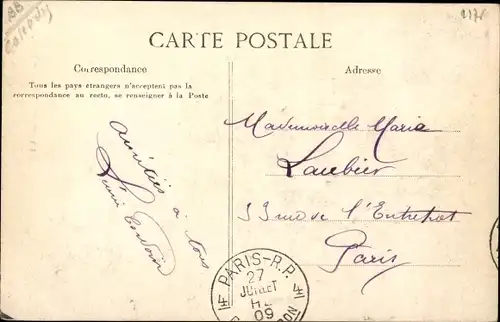 CARTE POSTALE
Correspondance
Tous les pays étrangers n'acceptent pas la
correspondance au recto, se renseigner à la Poste
Adresse
Amitiés à tous
Mademoiselle Marie
Laubier
33 rue de l'Entrepot
Paris
PARIS-R.P.
27
JUILLET
09